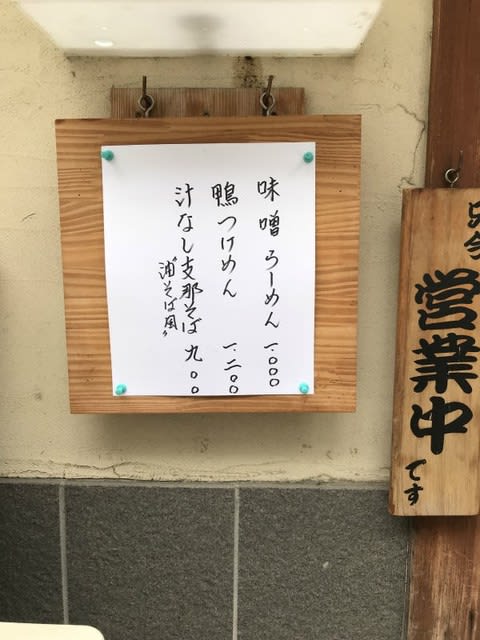 味噌らーめん 一.〇〇〇
鴨つけめん 一.二〇〇
汁なし支那そば 九〇〇
"油そば風"
只今
営業中
です